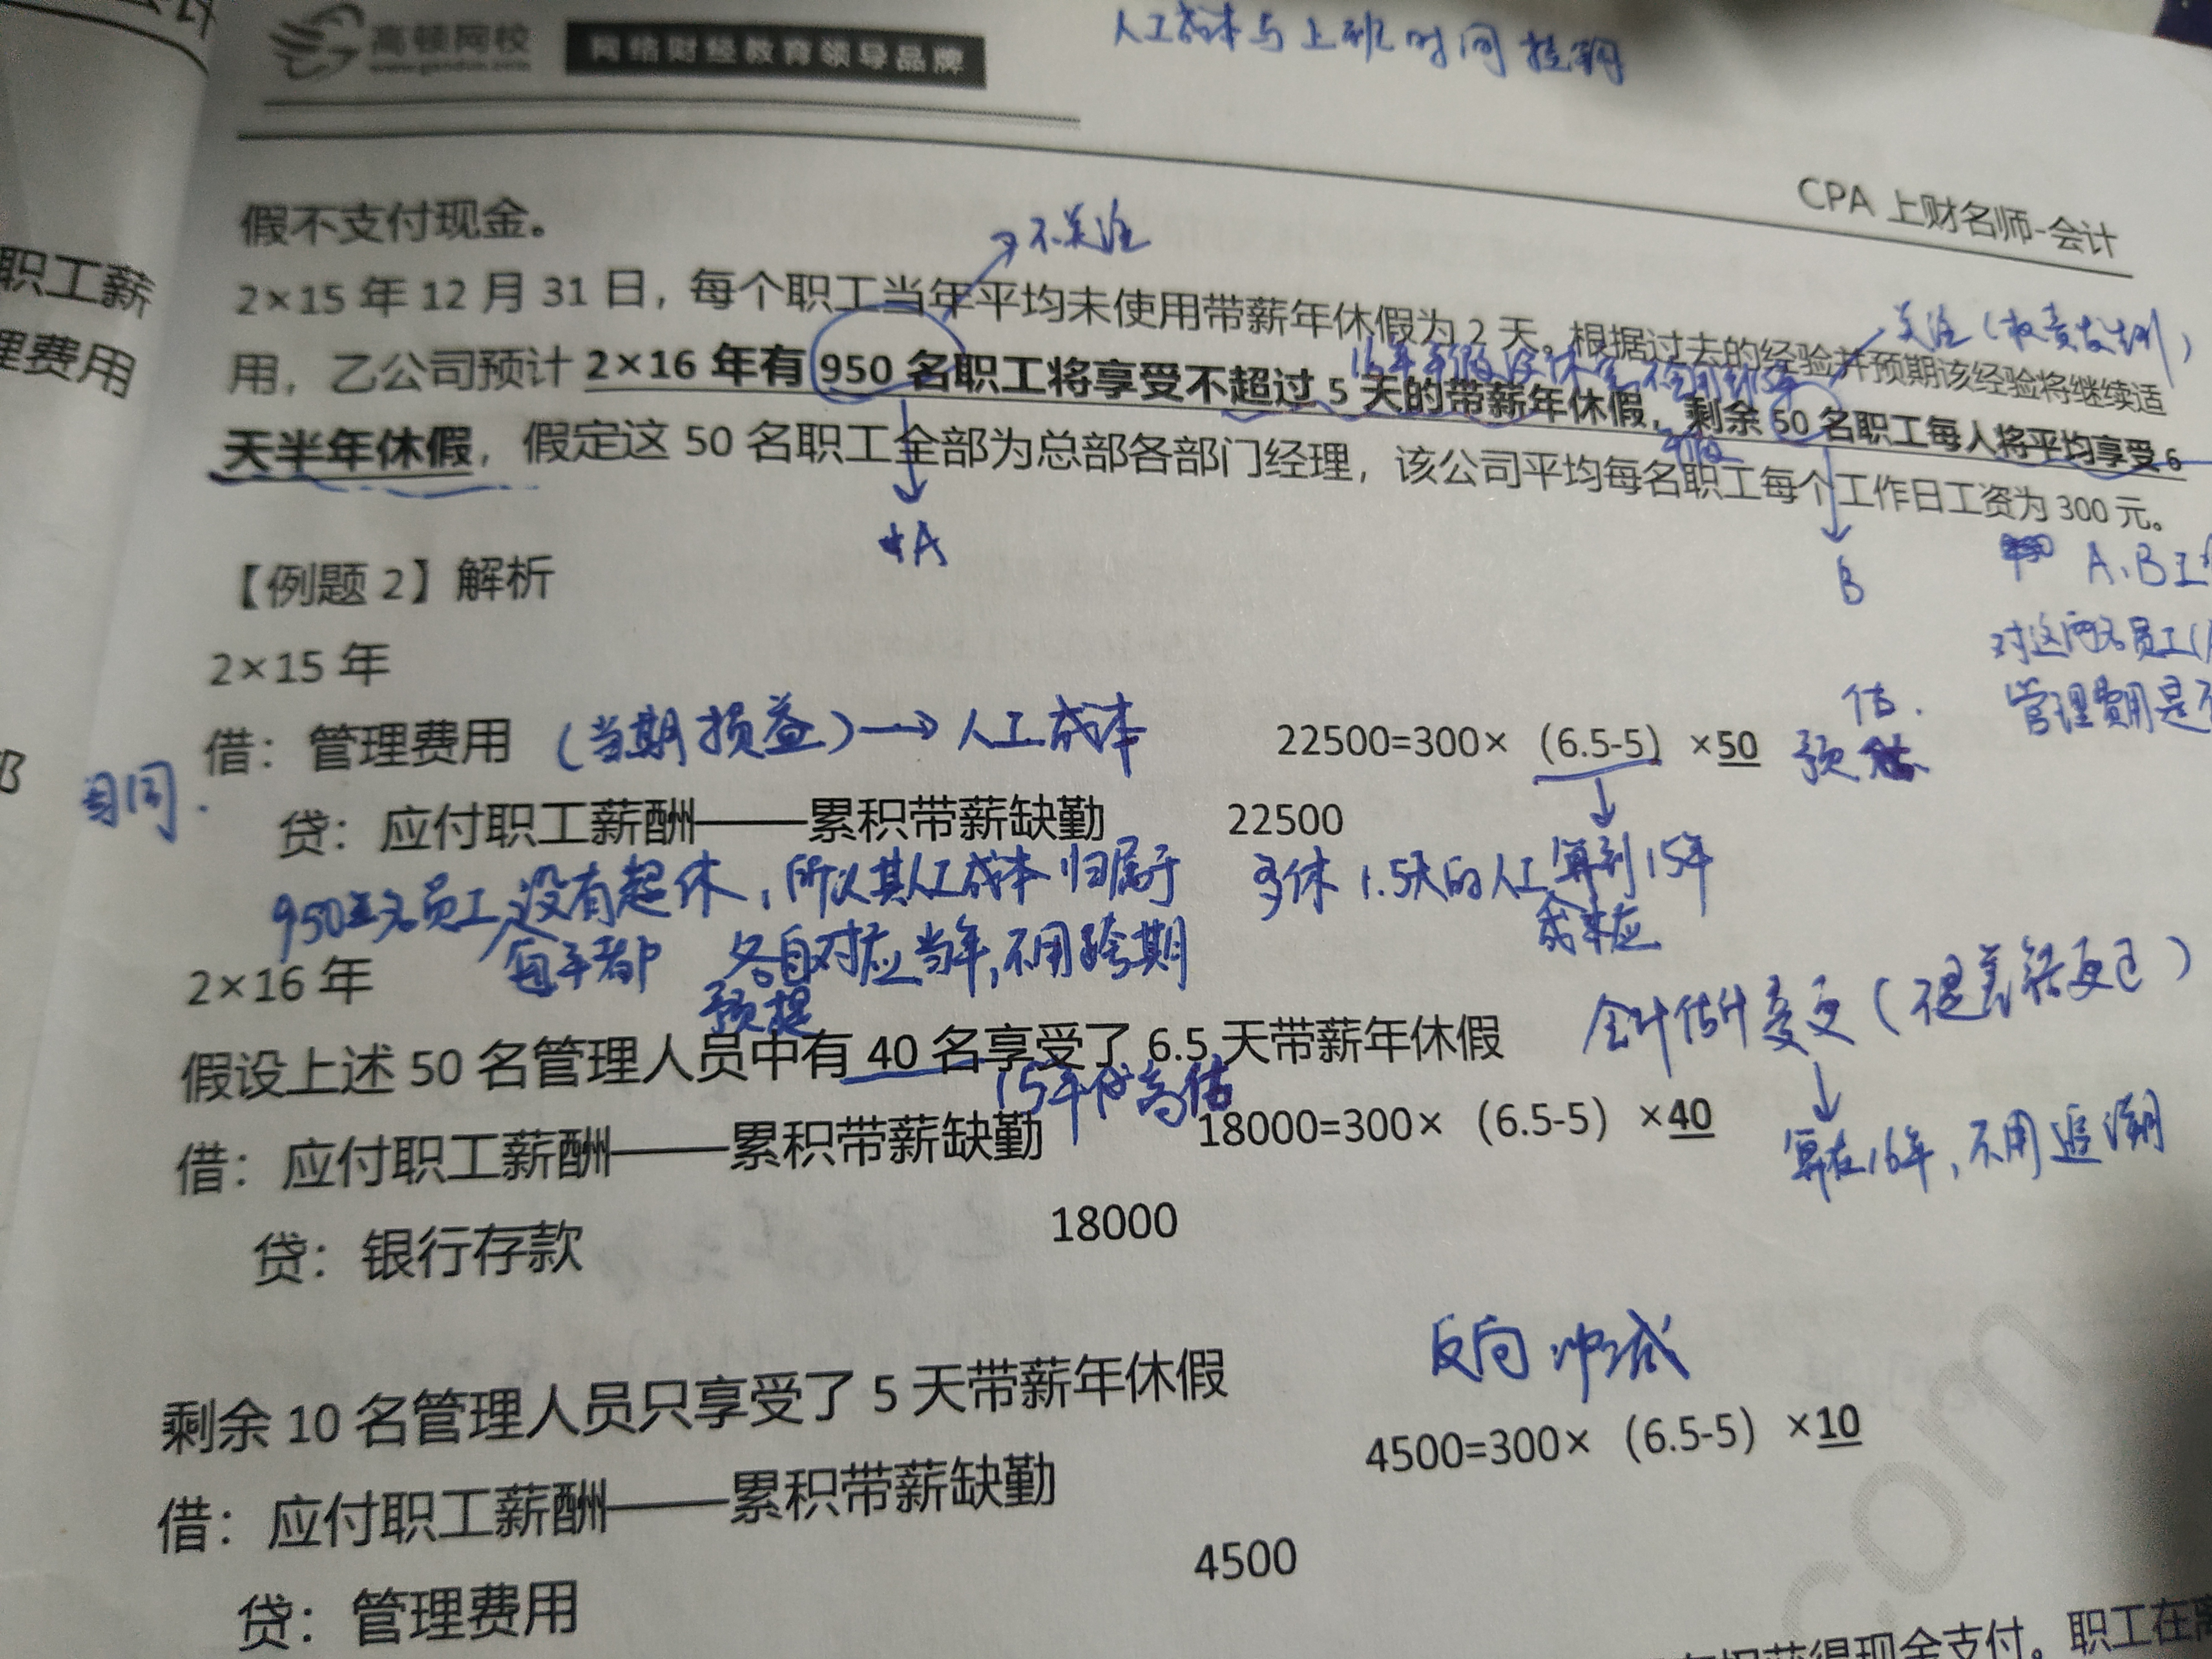 人工成本与上班时间挂钩
高顿网校
网络财经教育领导品牌
CPA 上财名师-会计
职工薪
理费用
假不支付现金。
不关注
2×15 年 12 月 31 日，每个职工当年平均未使用带薪年休假为 2 天。根据过去的经验并预期该经验将继续适
关注（权责发生制）
用，乙公司预计 2×16 年有 950 名职工将享受不超过 5 天的带薪年休假，剩余 50 名职工每人将平均享受 6
天半年休假，假定这 50 名职工全部为总部各部门经理，该公司平均每名职工每个工作日工资为 300 元。
A
B
A、B
【例题 2】解析
对这两名员工
2×15 年
管理费用是
借：管理费用（当期损益）→人工成本 22500=300×（6.5-5）×50 预估
贷：应付职工薪酬——累积带薪缺勤 22500
950名员工每年都没有超休，所以其人工成本归属于
多休 1.5天的人工算到15年
各自对应当年，不用跨期
预提
2×16 年
会计估计变更（不是差错更正）
假设上述 50 名管理人员中有 40 名享受了 6.5 天带薪年休假
15年 高估
借：应付职工薪酬——累积带薪缺勤 18000=300×（6.5-5）×40
算在16年，不用追溯
贷：银行存款 18000
反向冲减
剩余 10 名管理人员只享受了 5 天带薪年休假
4500=300×（6.5-5）×10
借：应付职工薪酬——累积带薪缺勤
贷：管理费用 4500
获得现金支付。职工在离
com